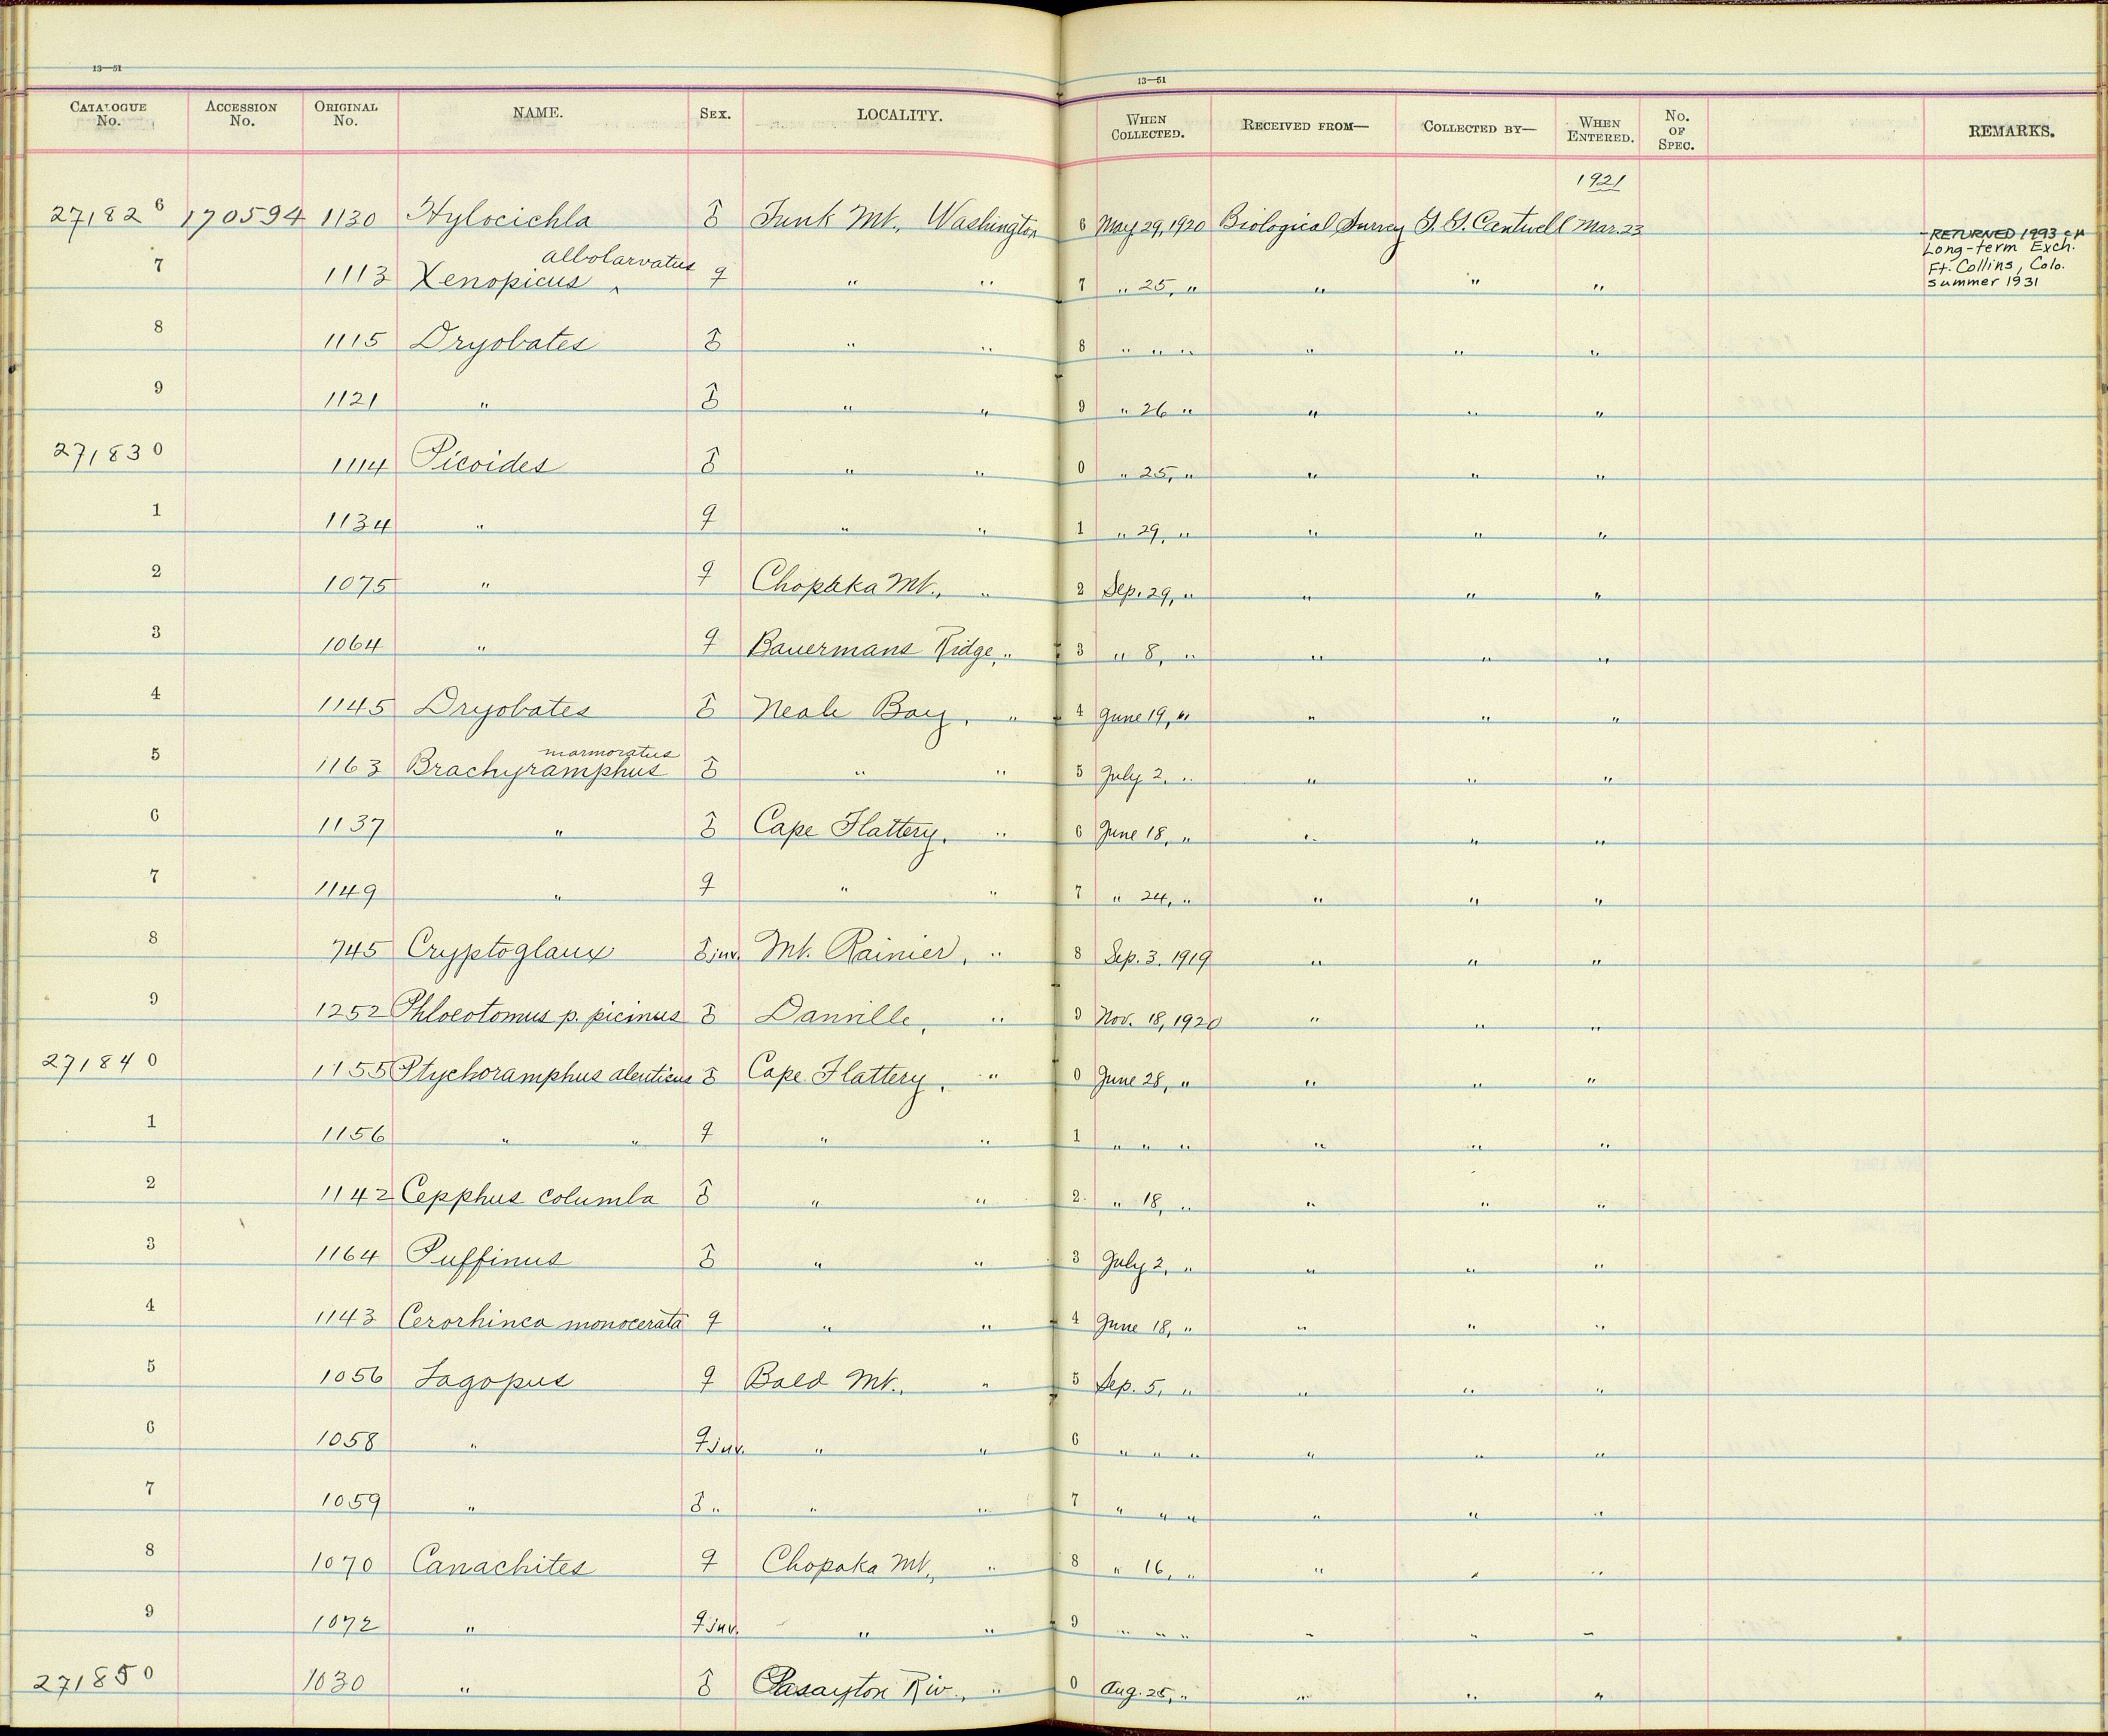 13—51
13—51
CATALOGUE No. ACCESSION No. ORIGINAL No. NAME. SEX. LOCALITY. WHEN COLLECTED. RECEIVED FROM— COLLECTED BY— WHEN ENTERED. No. OF SPEC. REMARKS.
1921
271826 170594 1130 Hylocichla ♂ Tunk Mt., Washington 6 May 29, 1920 Biological Survey G. G. Cantwell Mar. 23 RETURNED 1993
Long-term Exch.
Ft. Collins, Colo.
summer 1931
albolarvatus
7 1113 Xenopicus ‸ ♀ " " 7 " 25, " " " "
8 1115 Dryobates ♂ " " 8 " " " " " "
9 1121 " ♂ " " 9 " 26 " " " "
271830 1114 Picoides ♂ " " 0 " 25, " " " "
1 1134 " ♀ " " 1 " 29, " " " "
2 1075 " ♀ Chopaka Mt., " 2 Sep. 29, " " " "
3 1064 " ♀ Bauermans Ridge, " 3 " 8, " " " "
4 1145 Dryobates ♂ Neah Bay, " 4 June 19, " " " "
marmoratus
5 1163 Brachyramphus ♂ " " 5 July 2, " " " "
6 1137 " ♂ Cape Flattery, " 6 June 18, " " " "
7 1149 " ♀ " " 7 " 24, " " " "
8 745 Cryptoglaux ♂ juv. Mt. Rainier, " 8 Sep. 3, 1919 " " "
9 1252 Phloeotomus p. picinus ♂ Danville, " 9 Nov. 18, 1920 " " "
271840 1155 Ptychoramphus aleuticus ♂ Cape Flattery, " 0 June 28, " " " "
1 1156 " " ♀ " " 1 " " " " " "
2 1142 Cepphus columba ♂ " " 2 " 18, " " " "
3 1164 Puffinus ♂ " " 3 July 2, " " " "
4 1143 Cerorhinca monocerata ♀ " " 4 June 18, " " " "
5 1056 Lagopus ♀ Bald Mt., " 5 Sep. 5, " " " "
6 1058 " ♀ juv. " " 6 " " " " " "
7 1059 " ♂ " " " 7 " " " " " "
8 1070 Canachites ♀ Chopaka Mt., " 8 " 16, " " " "
9 1072 " ♀ juv. " " 9 " " " " " "
271850 1030 " ♂ Pasayton Riv., " 0 Aug. 25, " " " "